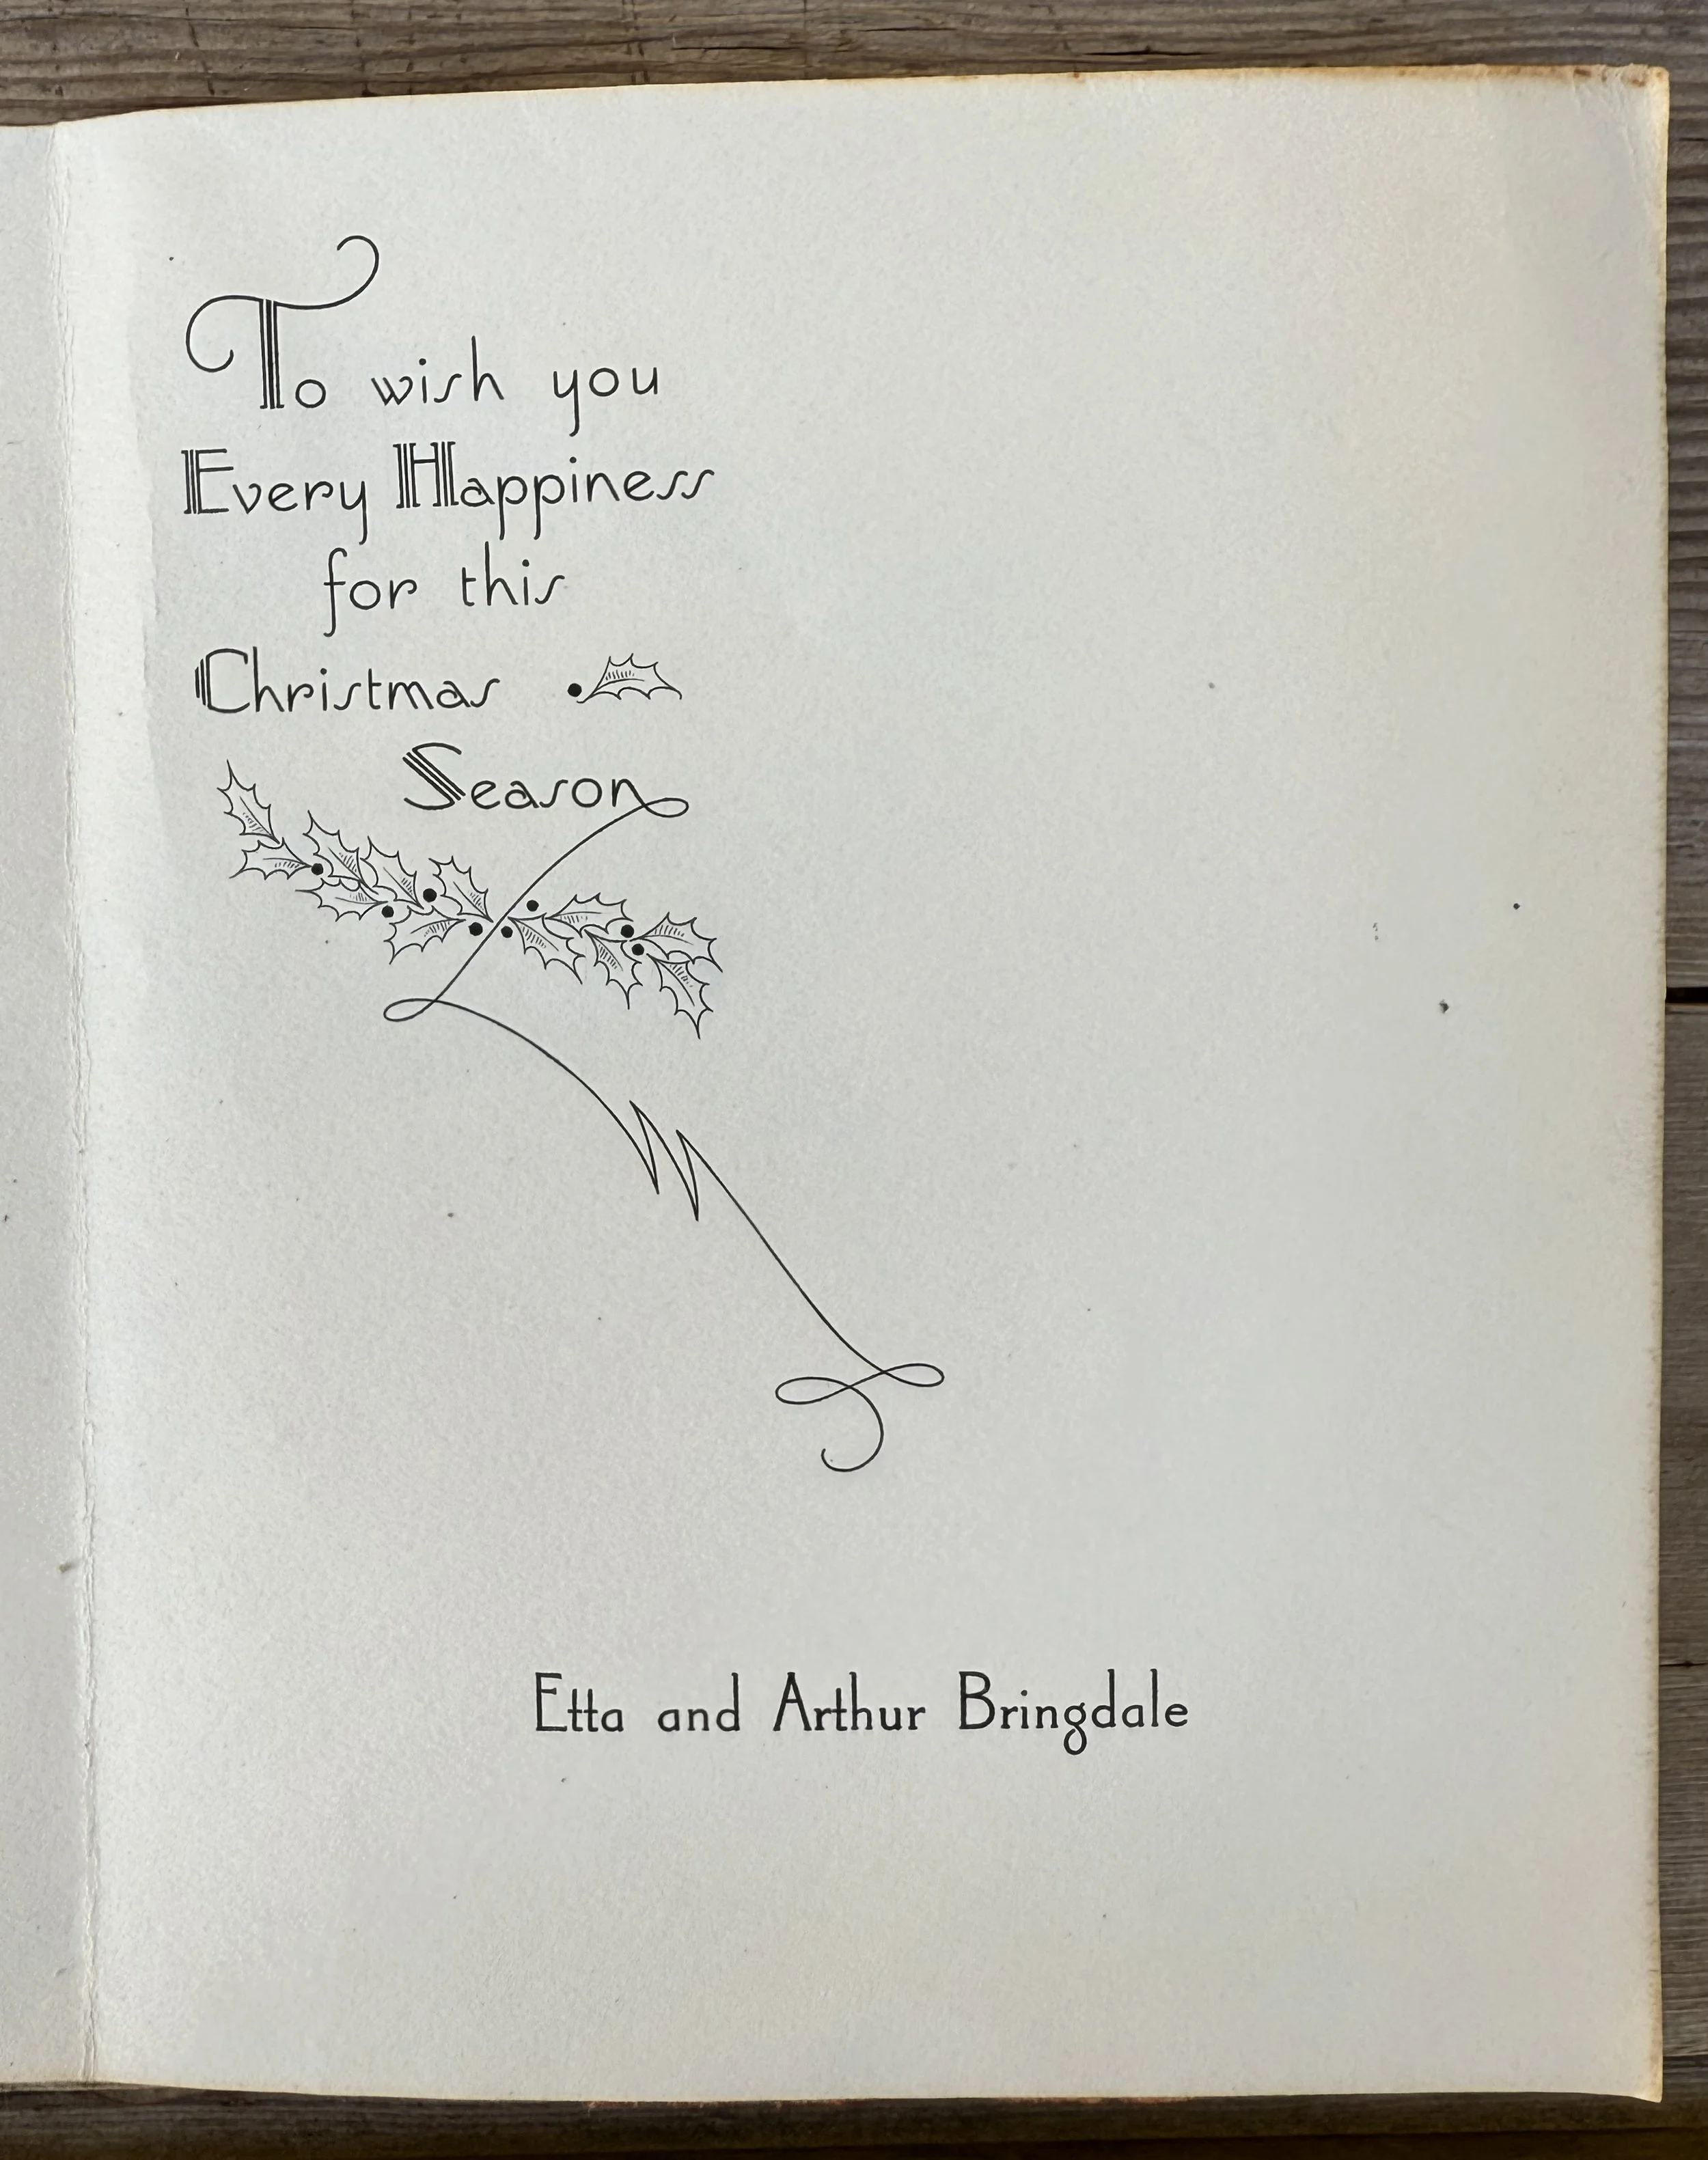 To wish you
Every Happiness
for this
Christmas
Season
Etta and Arthur Bringdale